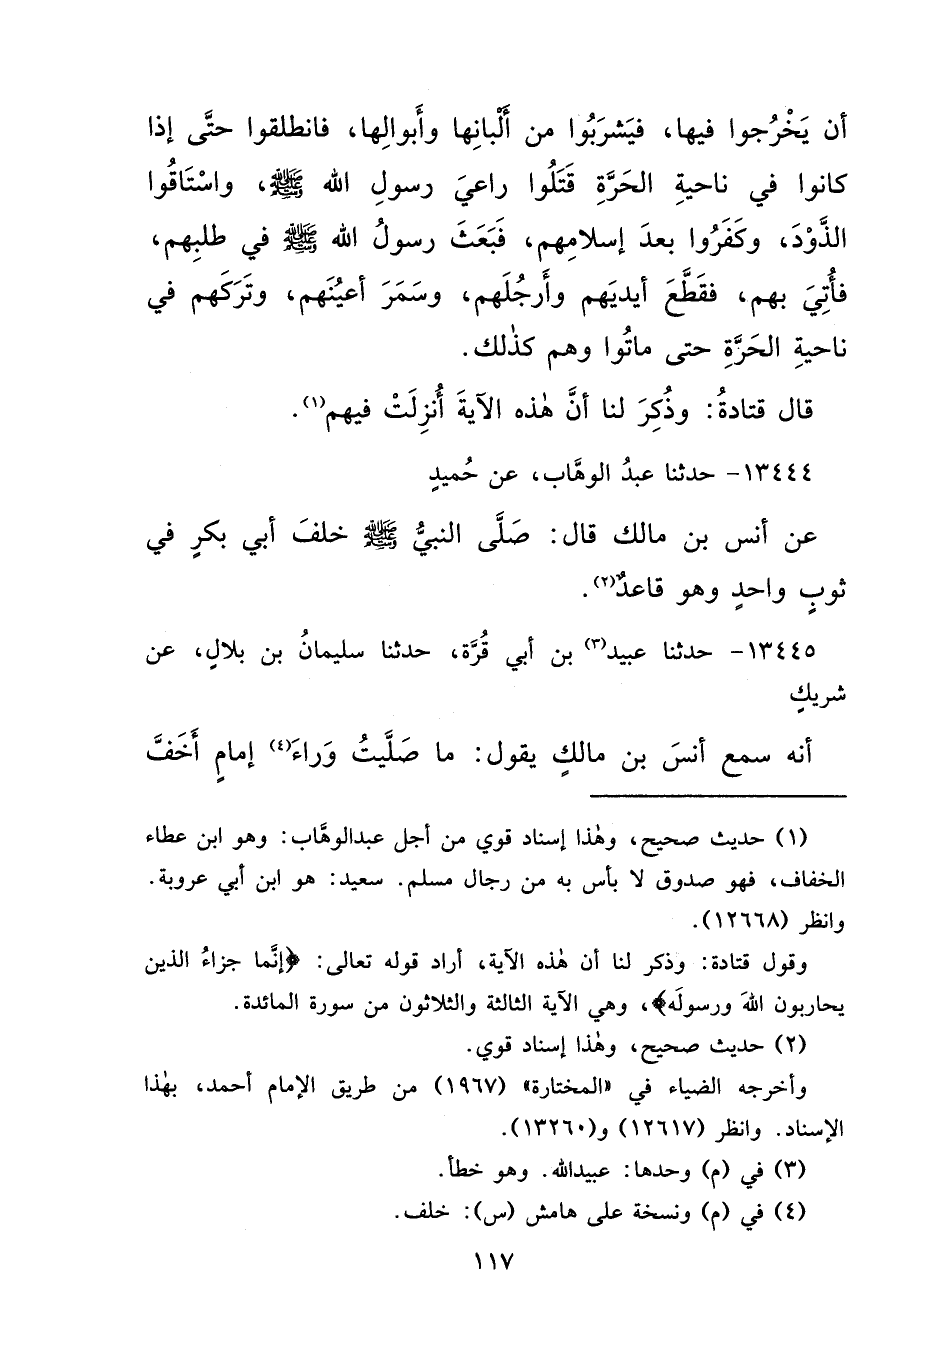 أن يَخْرُجوا فيها، فيَشرَبُوا من أَلْبانِها وأَبوالِها، فانطلقوا حتَّى إذا
كانوا في ناحيةِ الحَرَّةِ قَتَلُوا راعيَ رسولِ الله ﷺ، واسْتَاقُوا
الذَّوْدَ، وكَفَرُوا بعدَ إسلامِهم، فبَعَثَ رسولُ الله ﷺ في طلبِهم،
فأُتِيَ بهم، فقَطَّعَ أيديَهم وأَرجُلَهم، وسَمَرَ أعيُنَهم، وتَرَكَهم في
ناحيةِ الحَرَّةِ حتى ماتُوا وهم كذٰلك.
قال قتادةُ: وذُكِرَ لنا أنَّ هٰذه الآيةَ أُنزِلَتْ فيهم(١).
١٣٤٤٤- حدثنا عبدُ الوهَّاب، عن حُميدٍ
عن أنس بن مالك قال: صَلَّى النبيُّ ﷺ خلفَ أبي بكرٍ في
ثوبٍ واحدٍ وهو قاعدٌ(٢).
١٣٤٤٥- حدثنا عبيد(٣) بن أبي قُرَّة، حدثنا سليمانُ بن بلالٍ، عن
شريكٍ
أنه سمع أنسَ بن مالكٍ يقول: ما صَلَّيتُ وَراءَ(٤) إمامٍ أَخَفَّ
(١) حديث صحيح، وهٰذا إسناد قوي من أجل عبدالوهَّاب: وهو ابن عطاء
الخفاف، فهو صدوق لا بأس به من رجال مسلم. سعيد: هو ابن أبي عروبة.
وانظر (١٢٦٦٨).
وقول قتادة: وذكر لنا أن هٰذه الآية، أراد قوله تعالى: ﴿إنَّما جزاءُ الذين
يحاربون اللهَ ورسولَه﴾، وهي الآية الثالثة والثلاثون من سورة المائدة.
(٢) حديث صحيح، وهٰذا إسناد قوي.
وأخرجه الضياء في «المختارة» (١٩٦٧) من طريق الإمام أحمد، بهٰذا
الإسناد. وانظر (١٢٦١٧) و(١٣٢٦٠).
(٣) في (م) وحدها: عبيدالله. وهو خطأ.
(٤) في (م) ونسخة على هامش (س): خلف.
١١٧